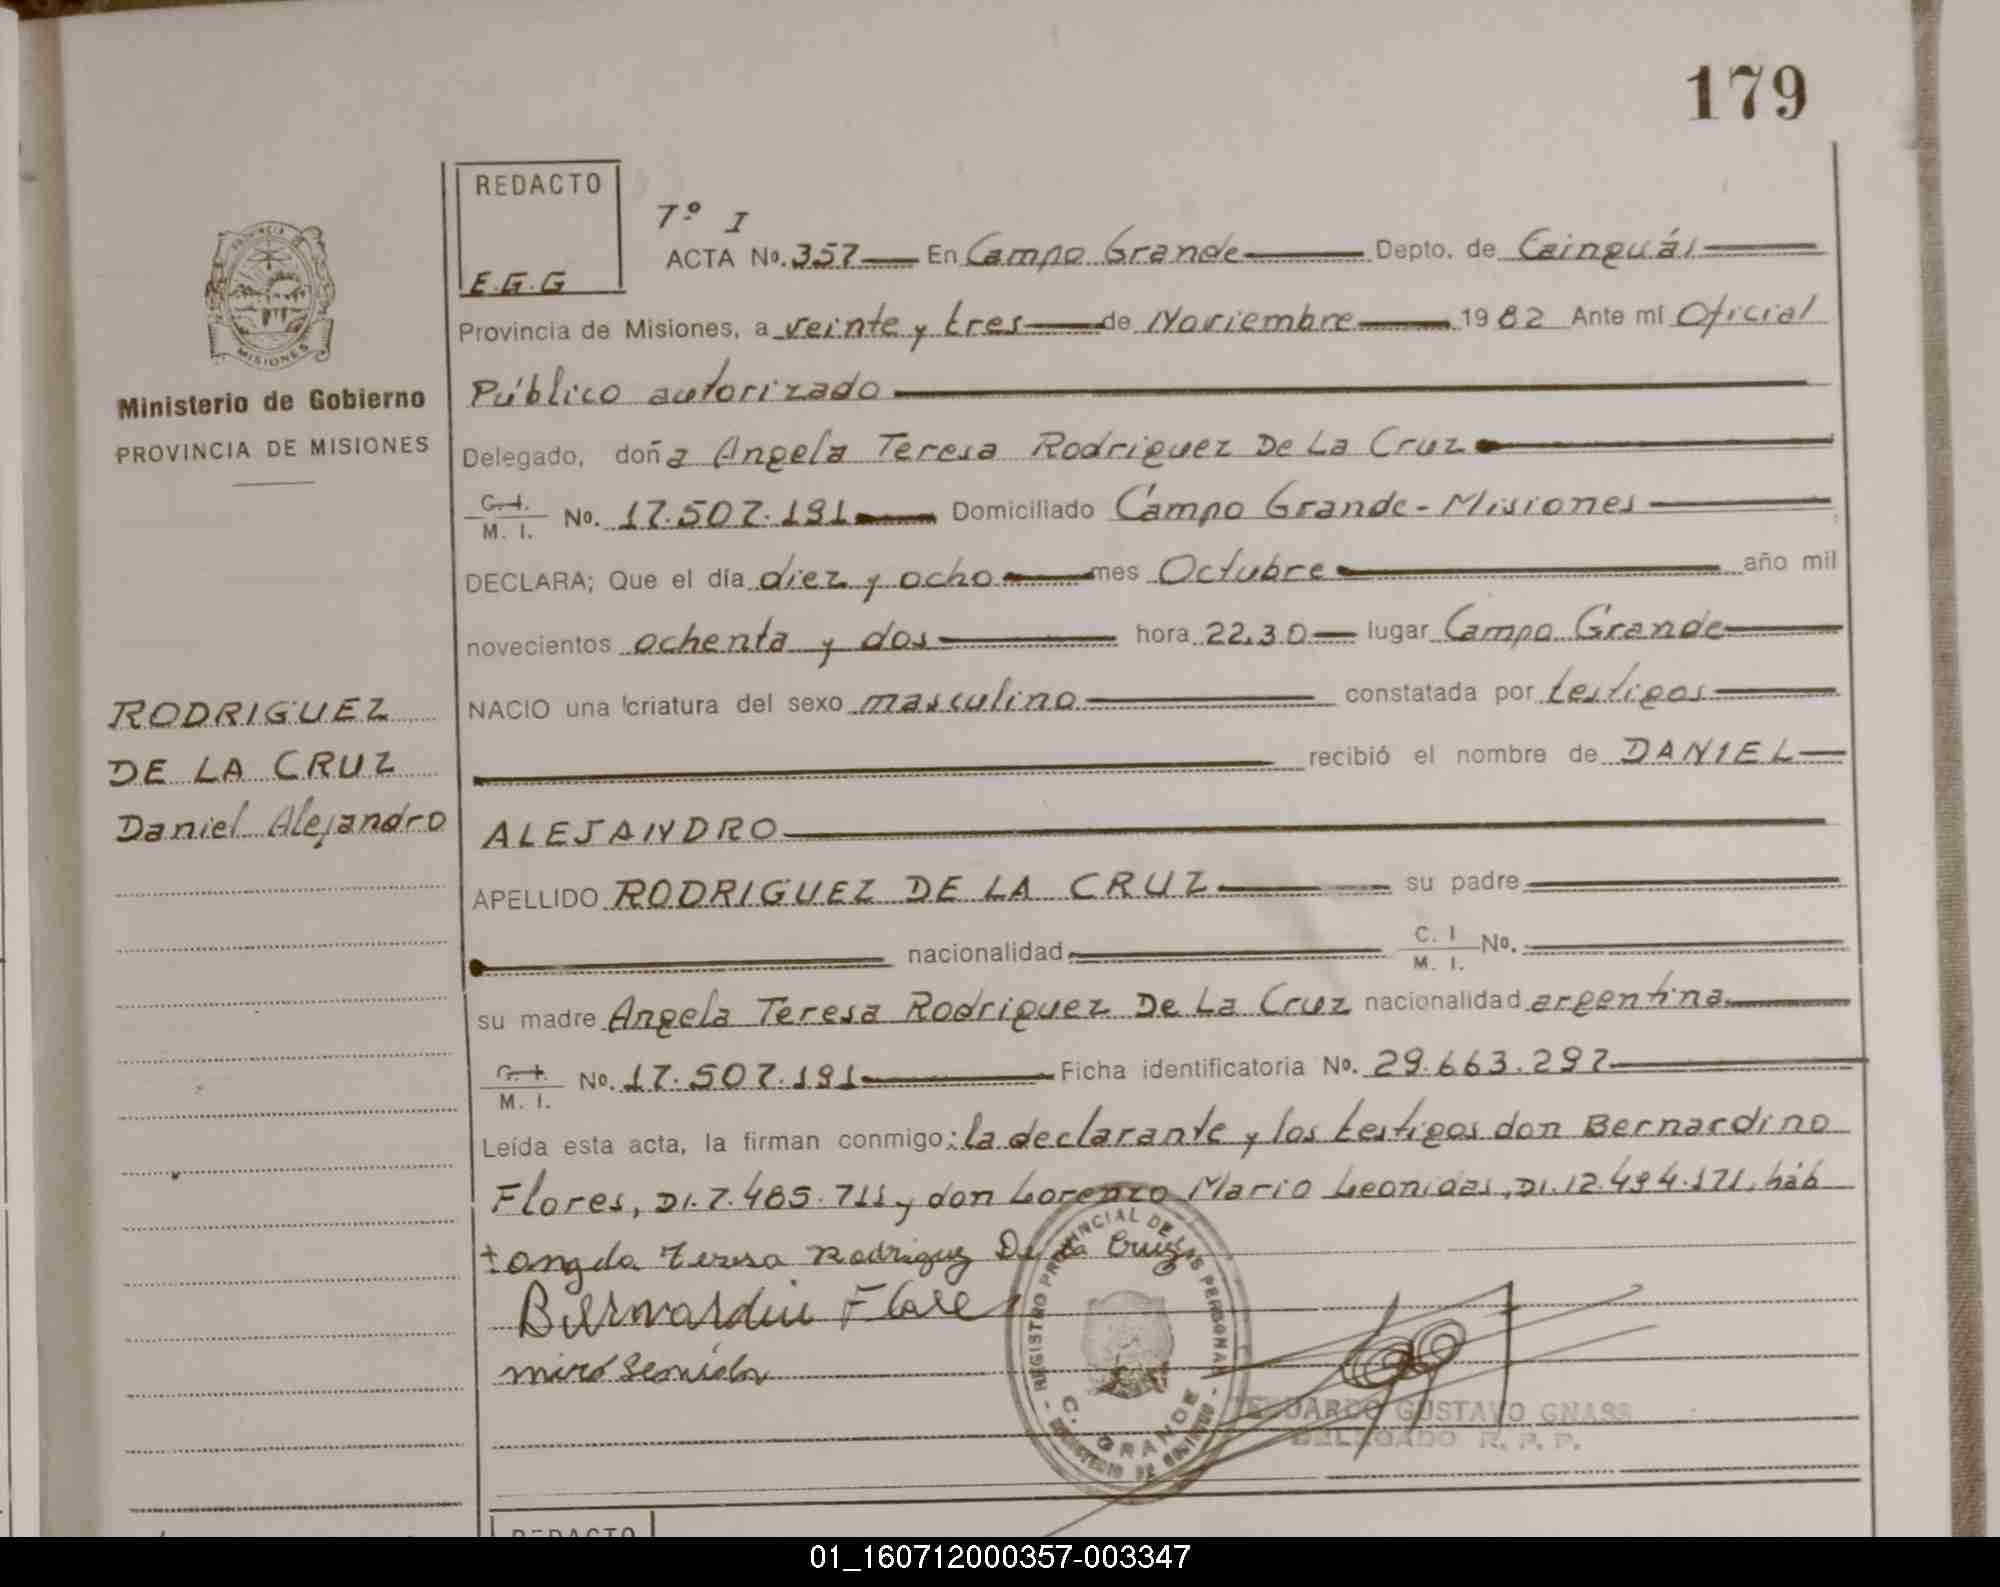 179
REDACTO
E.G.G
7º I
ACTA No. 357 En Campo Grande Depto. de Cainguás
Provincia de Misiones, a veinte y tres de Noviembre 1982 Ante mi Oficial
Público autorizado
Delegado, doña Angela Teresa Rodriguez De La Cruz
C. I.
M. I. No. 17.507.191 Domiciliado Campo Grande - Misiones
DECLARA; Que el día diez y ocho mes Octubre año mil
novecientos ochenta y dos hora 22.30 lugar Campo Grande
NACIO una criatura del sexo masculino constatada por testigos
recibió el nombre de DANIEL
ALEJANDRO
APELLIDO RODRIGUEZ DE LA CRUZ su padre
nacionalidad C. I
M. I. No.
su madre Angela Teresa Rodriguez De La Cruz nacionalidad argentina
C. I.
M. I. No. 17.507.191 Ficha identificatoria No. 29.663.297
Leída esta acta, la firman conmigo; la declarante y los testigos don Bernardino
Flores, DI. 7.485.711 y don Lorenzo Mario Leonidas, DI. 12.494.171, háb
Rodriguez De La Cruz
MISIONES
Ministerio de Gobierno
PROVINCIA DE MISIONES
RODRIGUEZ
DE LA CRUZ
Daniel Alejandro
REGISTRO PROVINCIAL DE LAS PERSONAS
C. GRANDE
MINISTERIO DE GOBIERNO
EDUARDO GUSTAVO GNASS
DELEGADO R. P. P.
REDACTO
01_160712000357-003347